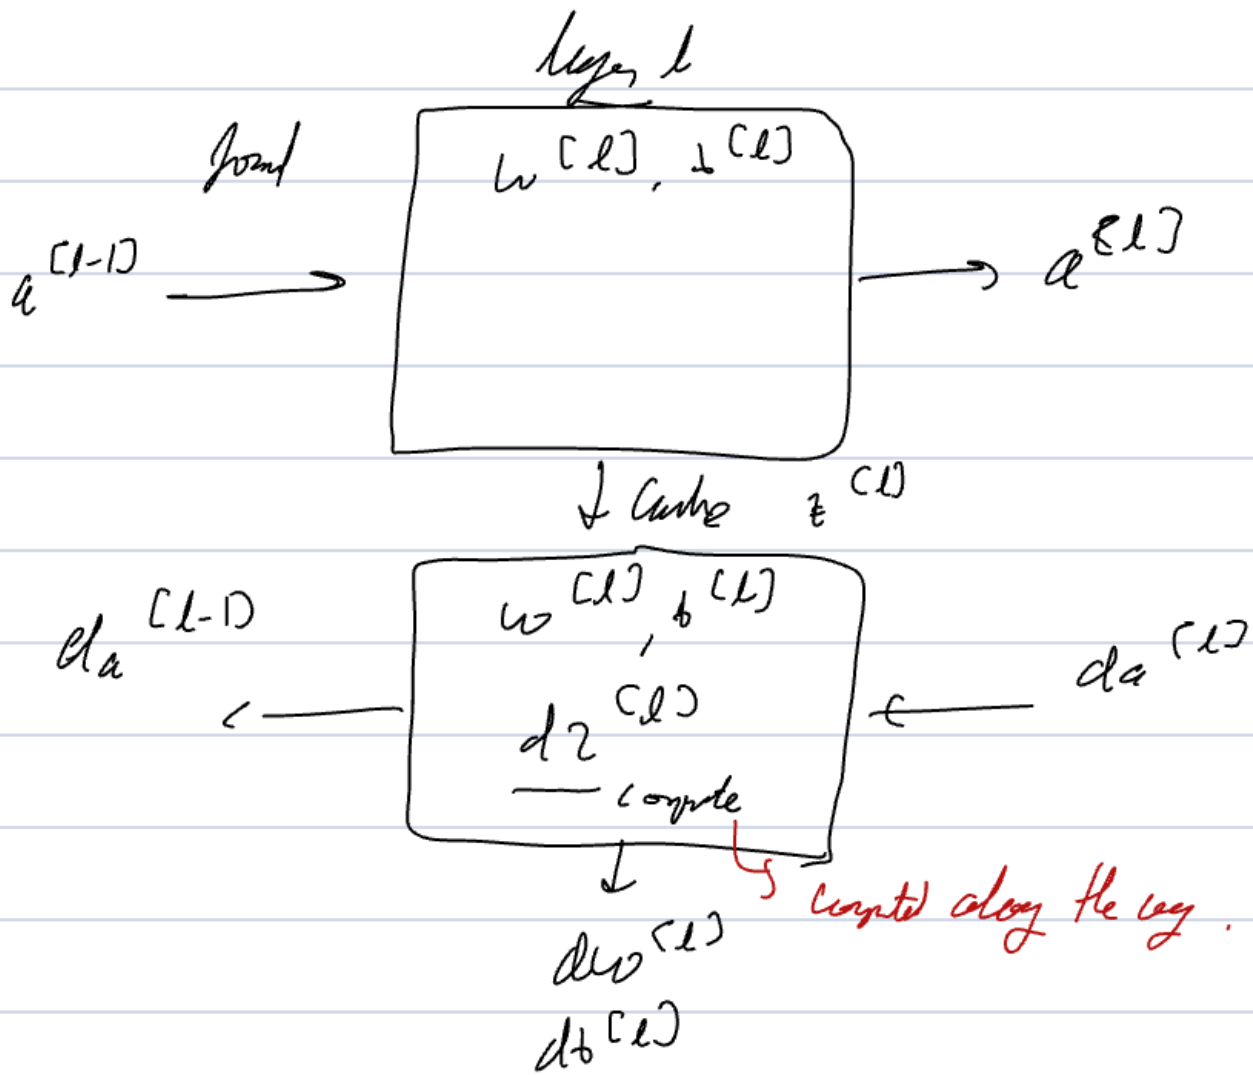 layer l
w^[l], b^[l]
a^[l-1]
a^[l]
Cache z^[l]
w^[l], b^[l]
da^[l-1]
da^[l]
dz^[l]
compute
computed along the way.
dw^[l]
db^[l]